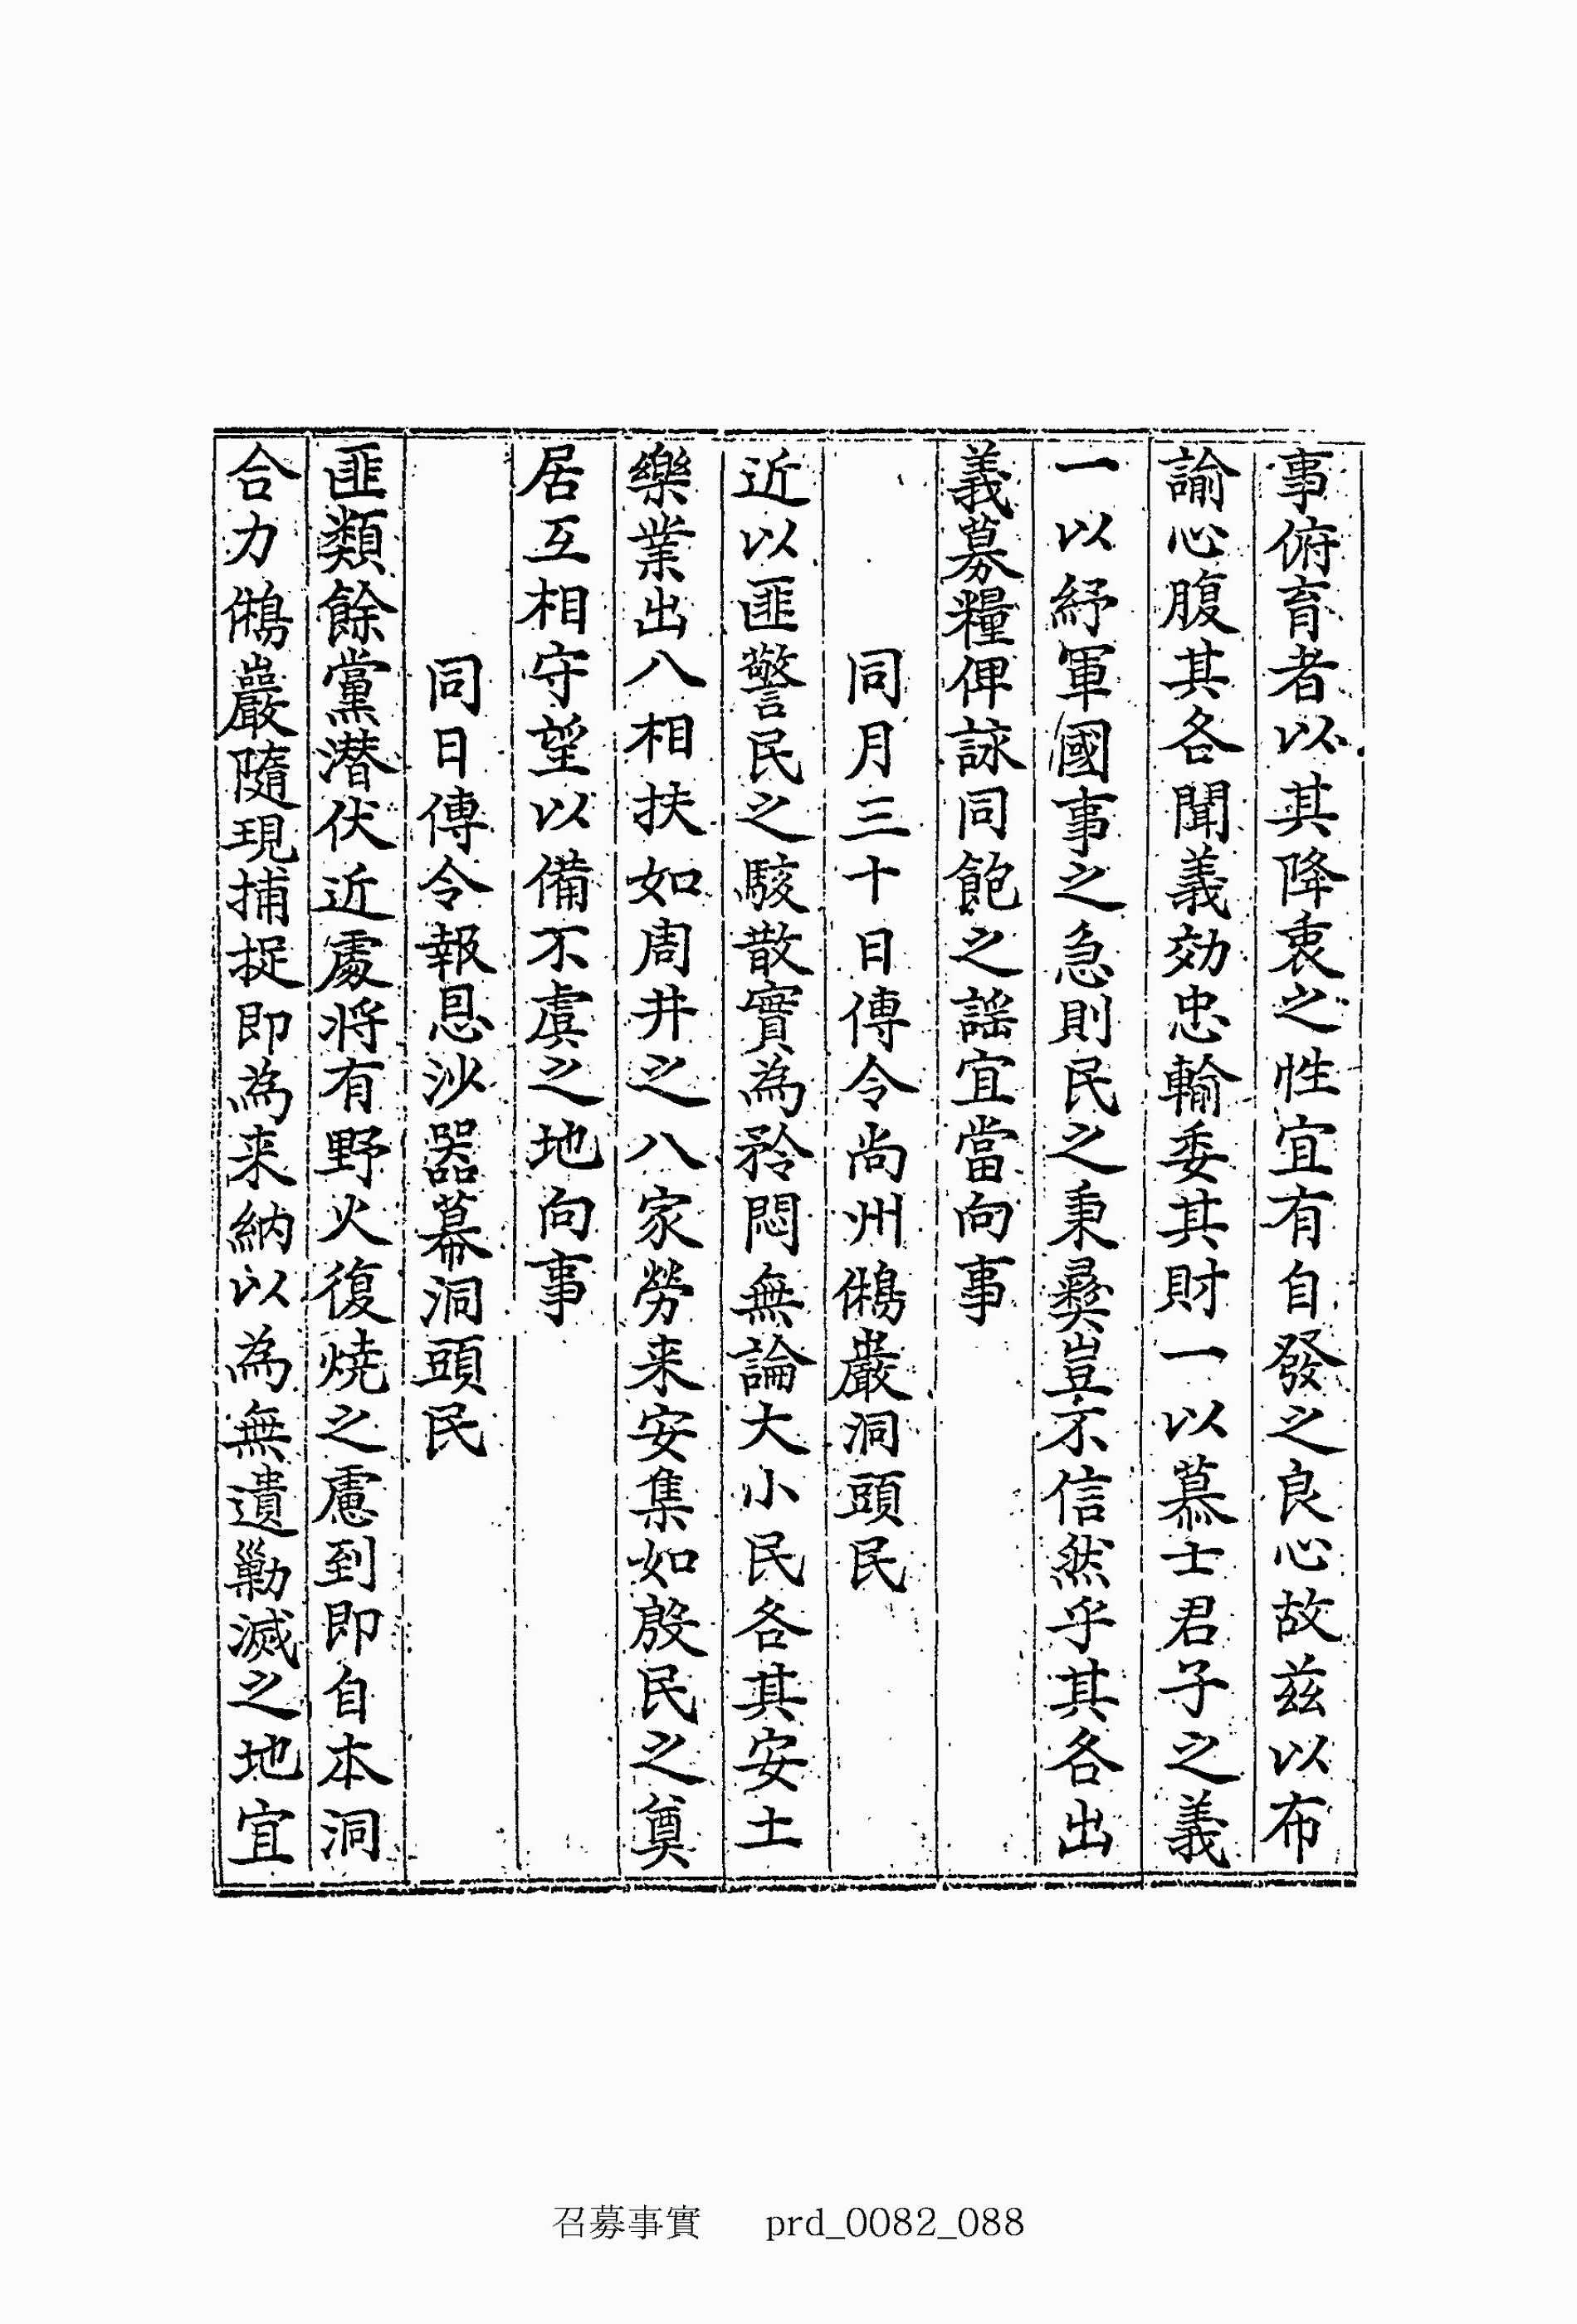 事俯育者以其降衷之性宜有自發之良心故玆以布
諭心腹其各聞義効忠輸委其財一以慕士君子之義
一以紓軍國事之急則民之秉彛豈不信然乎其各出
義募糧俾詠同飽之謠宜當向事
同月三十日傳令尙州鵂巖洞頭民
近以匪警民之駭散實為矜悶無論大小民各其安土
樂業出入相扶如周井之八家勞来安集如殷民之奠
居互相守望以備不虞之地向事
同日傳令報恩沙器幕洞頭民
匪類餘黨潜伏近處將有野火復燒之慮到即自本洞
合力鵂巖隨現捕捉即為来納以為無遺勦滅之地宜
召募事實 prd_0082_088